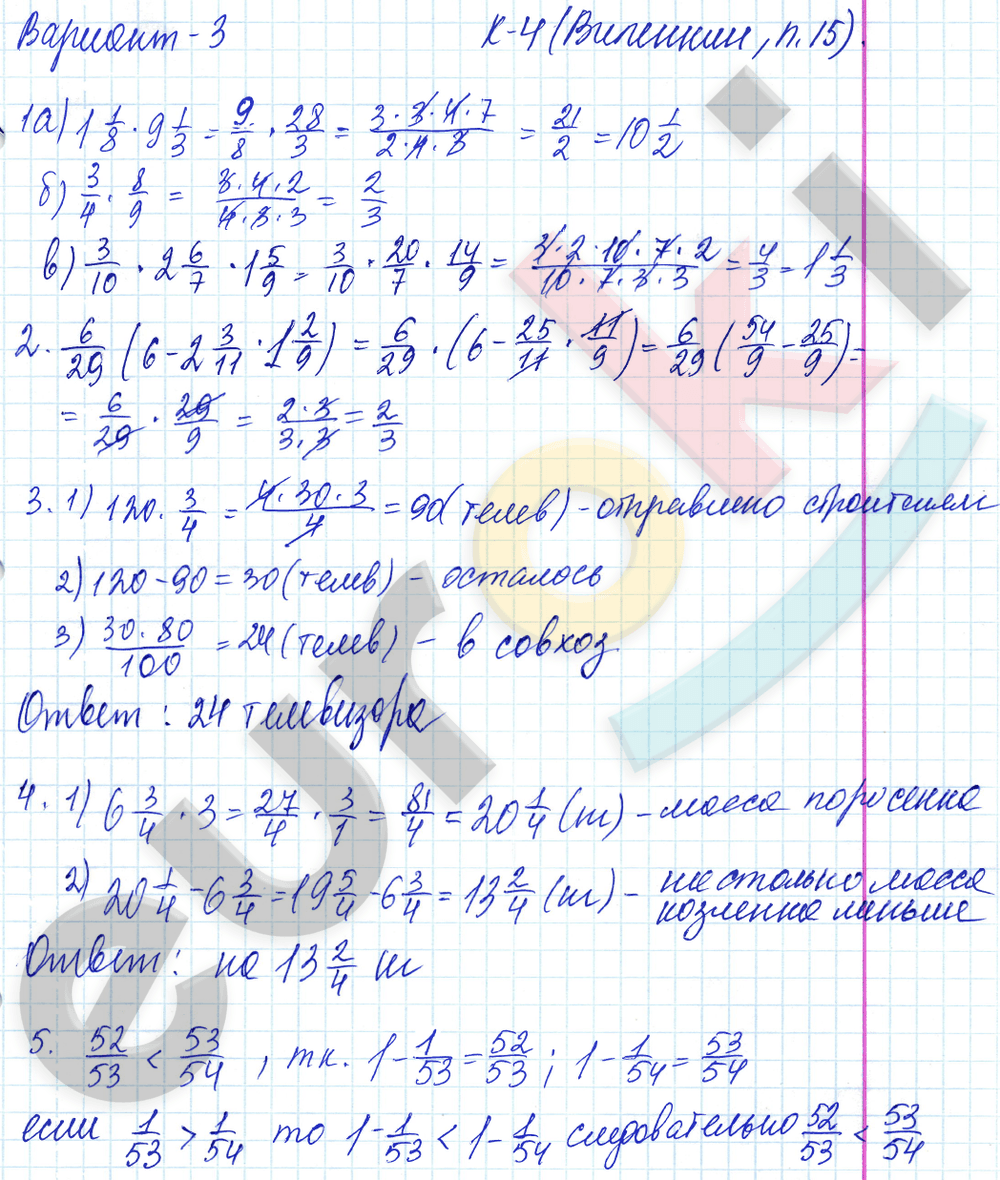 Вариант - 3 К-4 (Виленкин, п. 15).
1а) 1 1/8 · 9 1/3 = 9/8 · 28/3 = (3·3·4·7)/(2·4·3) = 21/2 = 10 1/2
б) 3/4 · 8/9 = (3·4·2)/(4·3·3) = 2/3
в) 3/10 · 2 6/7 · 1 5/9 = 3/10 · 20/7 · 14/9 = (3·2·10·7·2)/(10·7·3·3) = 4/3 = 1 1/3
2. 6/29 (6 - 2 3/11 · 1 2/9) = 6/29 · (6 - 25/11 · 11/9) = 6/29 (54/9 - 25/9) =
= 6/29 · 29/9 = (2·3)/(3·3) = 2/3
3. 1) 120 · 3/4 = (4·30·3)/4 = 90 (телев) - отправлено строителям
2) 120 - 90 = 30 (телев) - осталось
3) (30·80)/100 = 24 (телев) - в совхоз.
Ответ: 24 телевизора
4. 1) 6 3/4 · 3 = 27/4 · 3/1 = 81/4 = 20 1/4 (кг) - масса поросенка
2) 20 1/4 - 6 3/4 = 19 5/4 - 6 3/4 = 13 2/4 (кг) - настолько масса
козленка меньше
Ответ: на 13 2/4 кг
5. 52/53 < 53/54, тк. 1 - 1/53 = 52/53; 1 - 1/54 = 53/54
если 1/53 > 1/54 то 1 - 1/53 < 1 - 1/54 следовательно 52/53 < 53/54
euroki